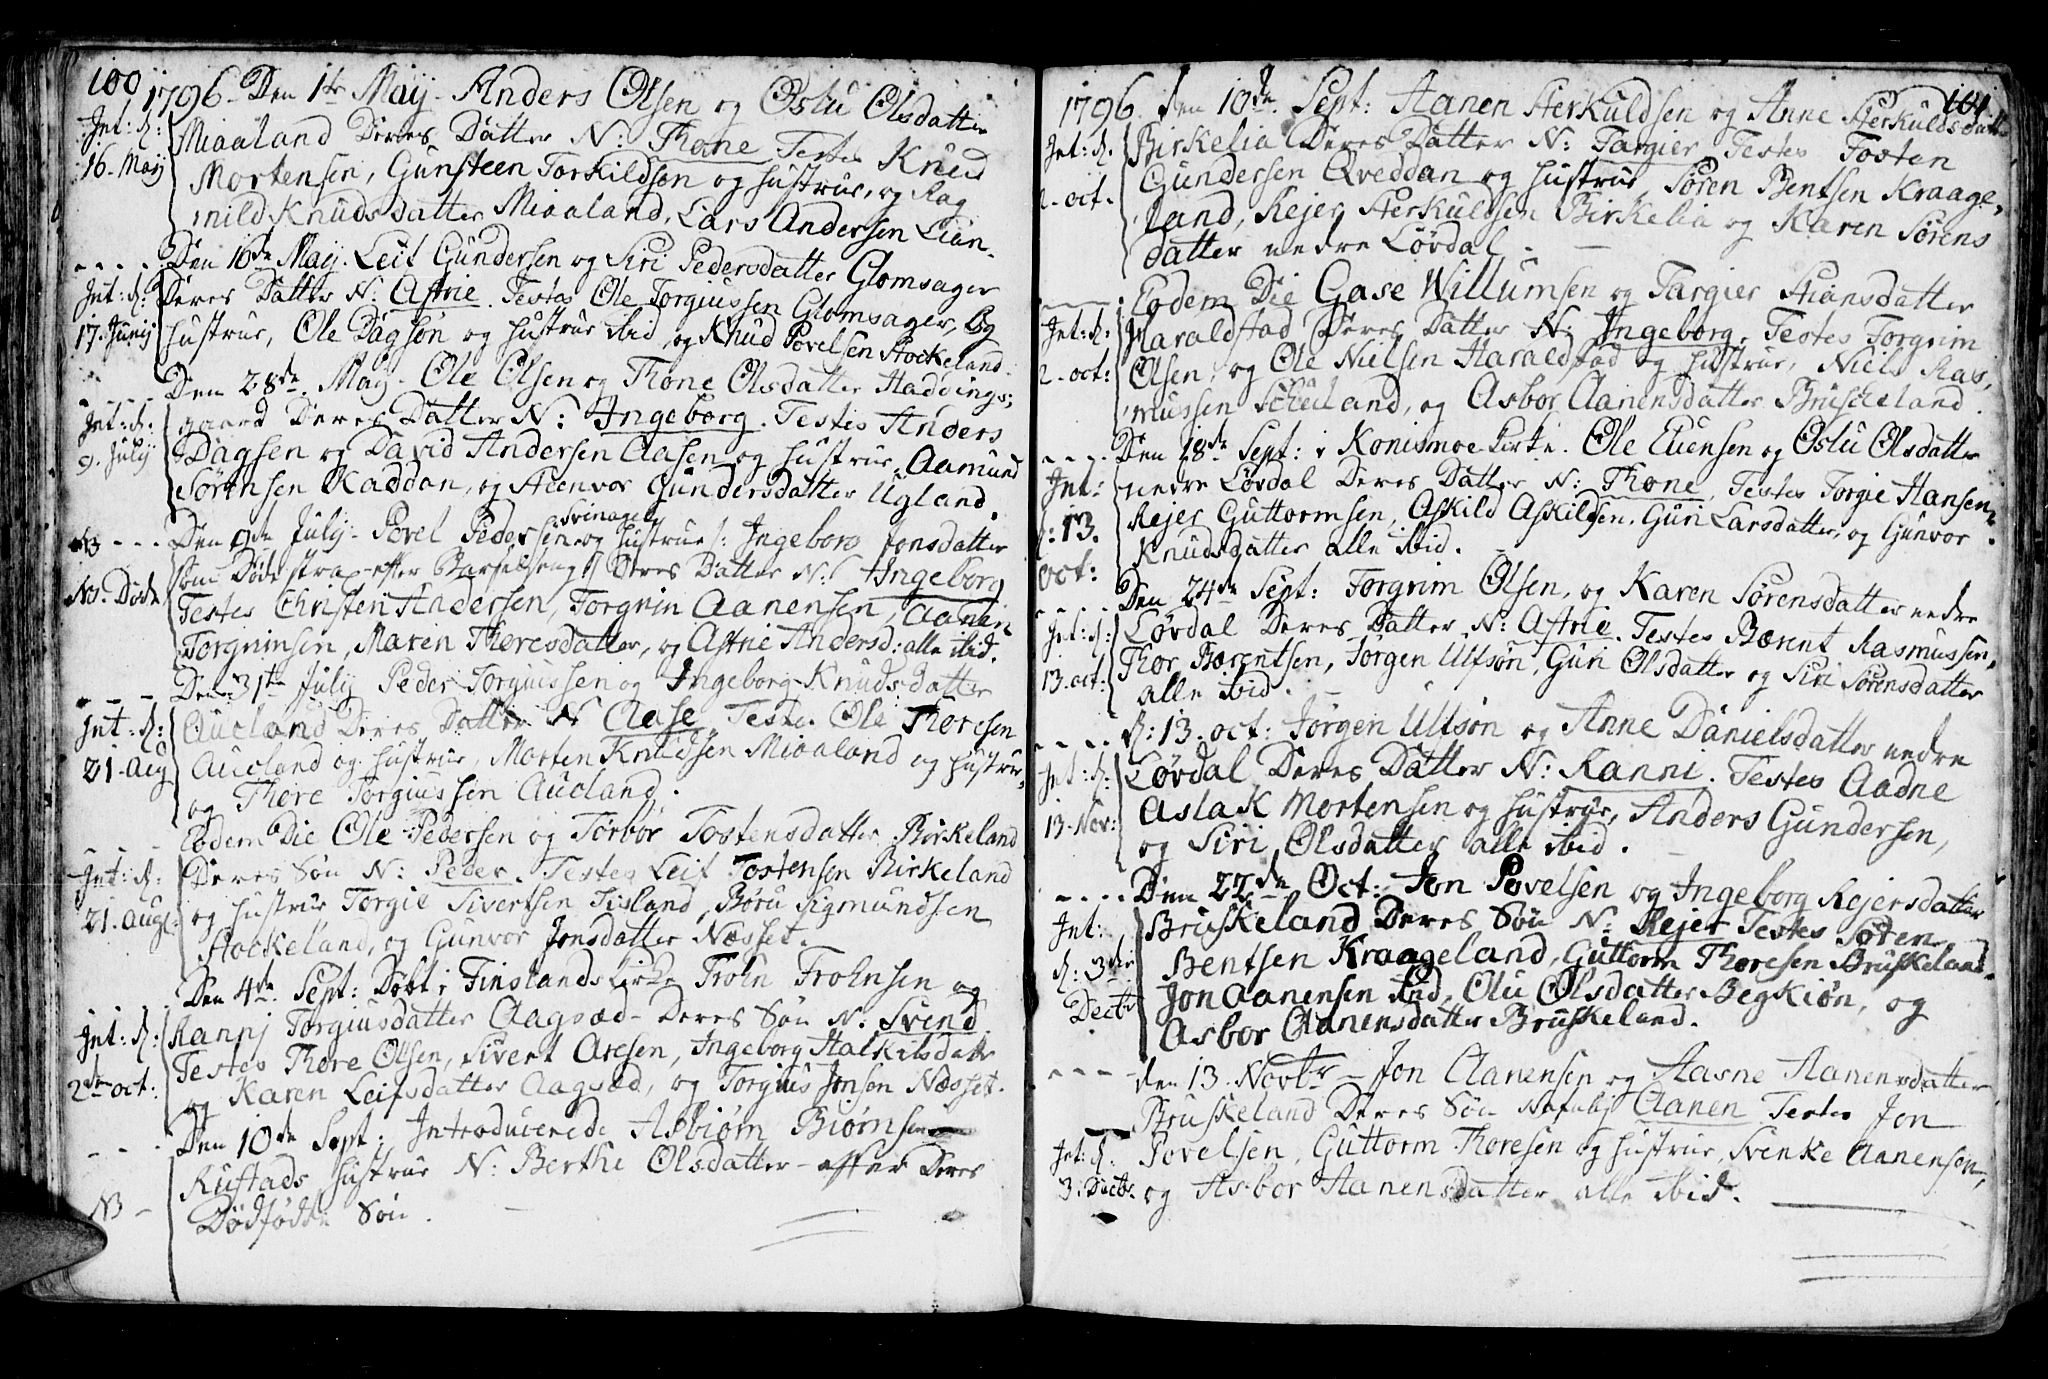 100
1796. Den 1te May. Anders Olsen og Oslu Olsdatter
Int: d:
16. May
Miaaland Deres Datter N: Thone Testes Knud
Mortensen, Gunsteen Torkildsen og Hustrue, og Rag
nild Knudsdatter Miaaland, Lars Andersen Lian.
Den 16de May. Leif Gundersen og Siri Pedersdatter Glomsager
Int: d:
17. Junij
Deres Datter N: Astrie. Testes Ole Torgiussen Glomsager, og
Hustrue, Ole Dagsøn og Hustrue ibid, og Knud Povelsen Stockeland.
Den 28de May. Ole Olsen og Thone Olsdatter Haddings;
Int: d:
9. July
gaard Deres Datter N: Ingeborg. Testes Anders
Dagsen og David Andersen Aasen og Hustrue, Aamund
Sørensen Kaddan, og Steenvor Gundersdatter Ugland.
NB
Svinager
Den July. Povel Pedersen og Hustrue /: Ingeborg Jonsdatter
som Døde strax efter Barselseng :/ Deres Datter N: Ingeborg
N. Døde
Testes Christen Andersen, Torgrim Aanensen, Aanen
Torgrimsen, Maren Thoresdatter, og Astrie Andersd: alle ibid.
Den 31te July Peder Torgiussen og Ingeborg Knudsdatter
Int: d:
21. Aug
Aucland Deres Datter N Aase Testes Ole Thoresen
Aucland og Hustrue, Morten Knudsen Miaaland og Hustrue,
og Thore Torgiussen Aucland.
Eodem Die Ole Pedersen og Torbor Tostensdatter Birkeland
Int: d:
21. Aug:
Deres Søn N: Peder. Testes Leif Tostensen Birkeland
og Hustrue Torgie Sivertsen Fisland, Børu Sigmundsen
Stockeland, og Gunvor Jonsdatter Næsset.
Den 4de Sept: Døbt i Finslands Kirke Troln Trolnsen og
Int: d:
2de oct:
Rannj Torgiusdatter Aagsæd - Deres Søn N: Svend
Testes Thore Olsen, Sivert Aresen, Ingeborg Halkilsdatter
og Karen Leifsdatter Aagsæd, og Torgius Jonsen Næsset.
Den 10de Sept: Introducerede Asbiørn Biørnsen
NB
Rustads Hustrue N: Berthe Olsdatter - efter Deres
Dødfødde Søn.
101
1796. den 10de Sept: Aanen Sterkuldsen og Anne Sterkuldsdatter
Int: d:
2. oct.
Birkelia Deres Datter N: Targier Testes Tosten
Gundersen Qveddan og Hustrue, Søren Bentsen Kraage,
land, Rejer Sterkuldsen Birkelia og Karen Sørens
datter nedre Løvdal.
Eodem Die Gase Willumsen og Targier Stiansdatter
Int: d:
2. oct:
Haraldstad Deres Datter N: Ingeborg. Testes Torgrim
Olsen, og Ole Nielsen Haraldstad og Hustrue, Niels Ras,
mussen Scheiland, og Asbor Aanensdatter Bruscheland.
Den 18de Sept: i Konismoe Kirke. Ole Evensen og Oslu Olsdatter
Int:
d: 13.
oct:
nedre Løvdal Deres Datter N: Thone, Testes Torgie Hansen,
Rejer Guttormsen, Askild Askildsen, Guri Larsdatter, og Gunvor
Knudsdatter alle ibid.
Den 24de Sept: Torgrim Olsen, og Karen Sørensdatter nedre
Int: d:
13. oct:
Løvdal Deres Datter N: Astrie. Testes Bærent Rasmussen,
Thor Bærentsen, Jørgen Ulfsøn, Guri Olsdatter og Siri Sørensdatter
alle ibid.
d: 13. oct: Jørgen Ulfsøn og Anne Danielsdatter nedre
Int: d:
13. Nov:
Løvdal Deres Datter N: Ranni. Testes Aadne
Aslak Mortensen og Hustrue, Anders Gundersen,
og Siri Olsdatter alle ibid.
Den 22de Oct: Jon Povelsen og Ingeborg Rejersdatter
Int:
d: 3die
Dectr
Bruskeland Deres Søn N: Rejer Testes Søren
Bentsen Kraageland, Guttorm Thoresen Bruskeland.
Jon Aanensen ibid, Olu Olsdatter Begkiøn, og
Asbor Aanensdatter Bruskeland.
den 13. Novtr - Jon Aanensen og Aasne Aanensdatter
Bruskeland Deres Søn Nafnlig Aanen Testes Jon
Int: d.
3. Dectr.
Povelsen, Guttorm Thoresen og Hustrue, Svenke Aanensøn,
og Asbor Aanensdatter alle ibid.